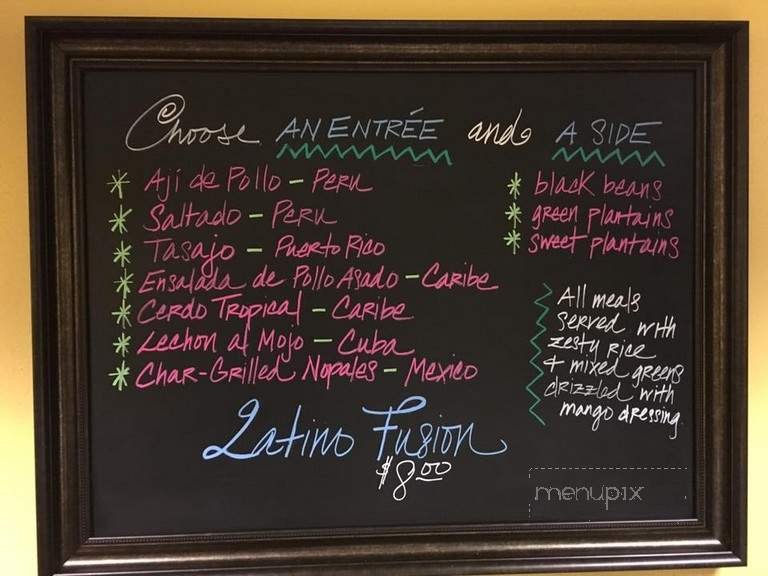 Choose AN ENTRÉE and A SIDE
* Ají de Pollo – Peru
* Saltado – Peru
* Tasajo – Puerto Rico
* Ensalada de Pollo Asado – Caribe
* Cerdo Tropical – Caribe
* Lechon al Mojo – Cuba
* Char-Grilled Nopales – Mexico
* black beans
* green plantains
* sweet plantains
All meals
served with
zesty rice
& mixed greens
drizzled with
mango dressing
Latino Fusion
$8.00
menupix